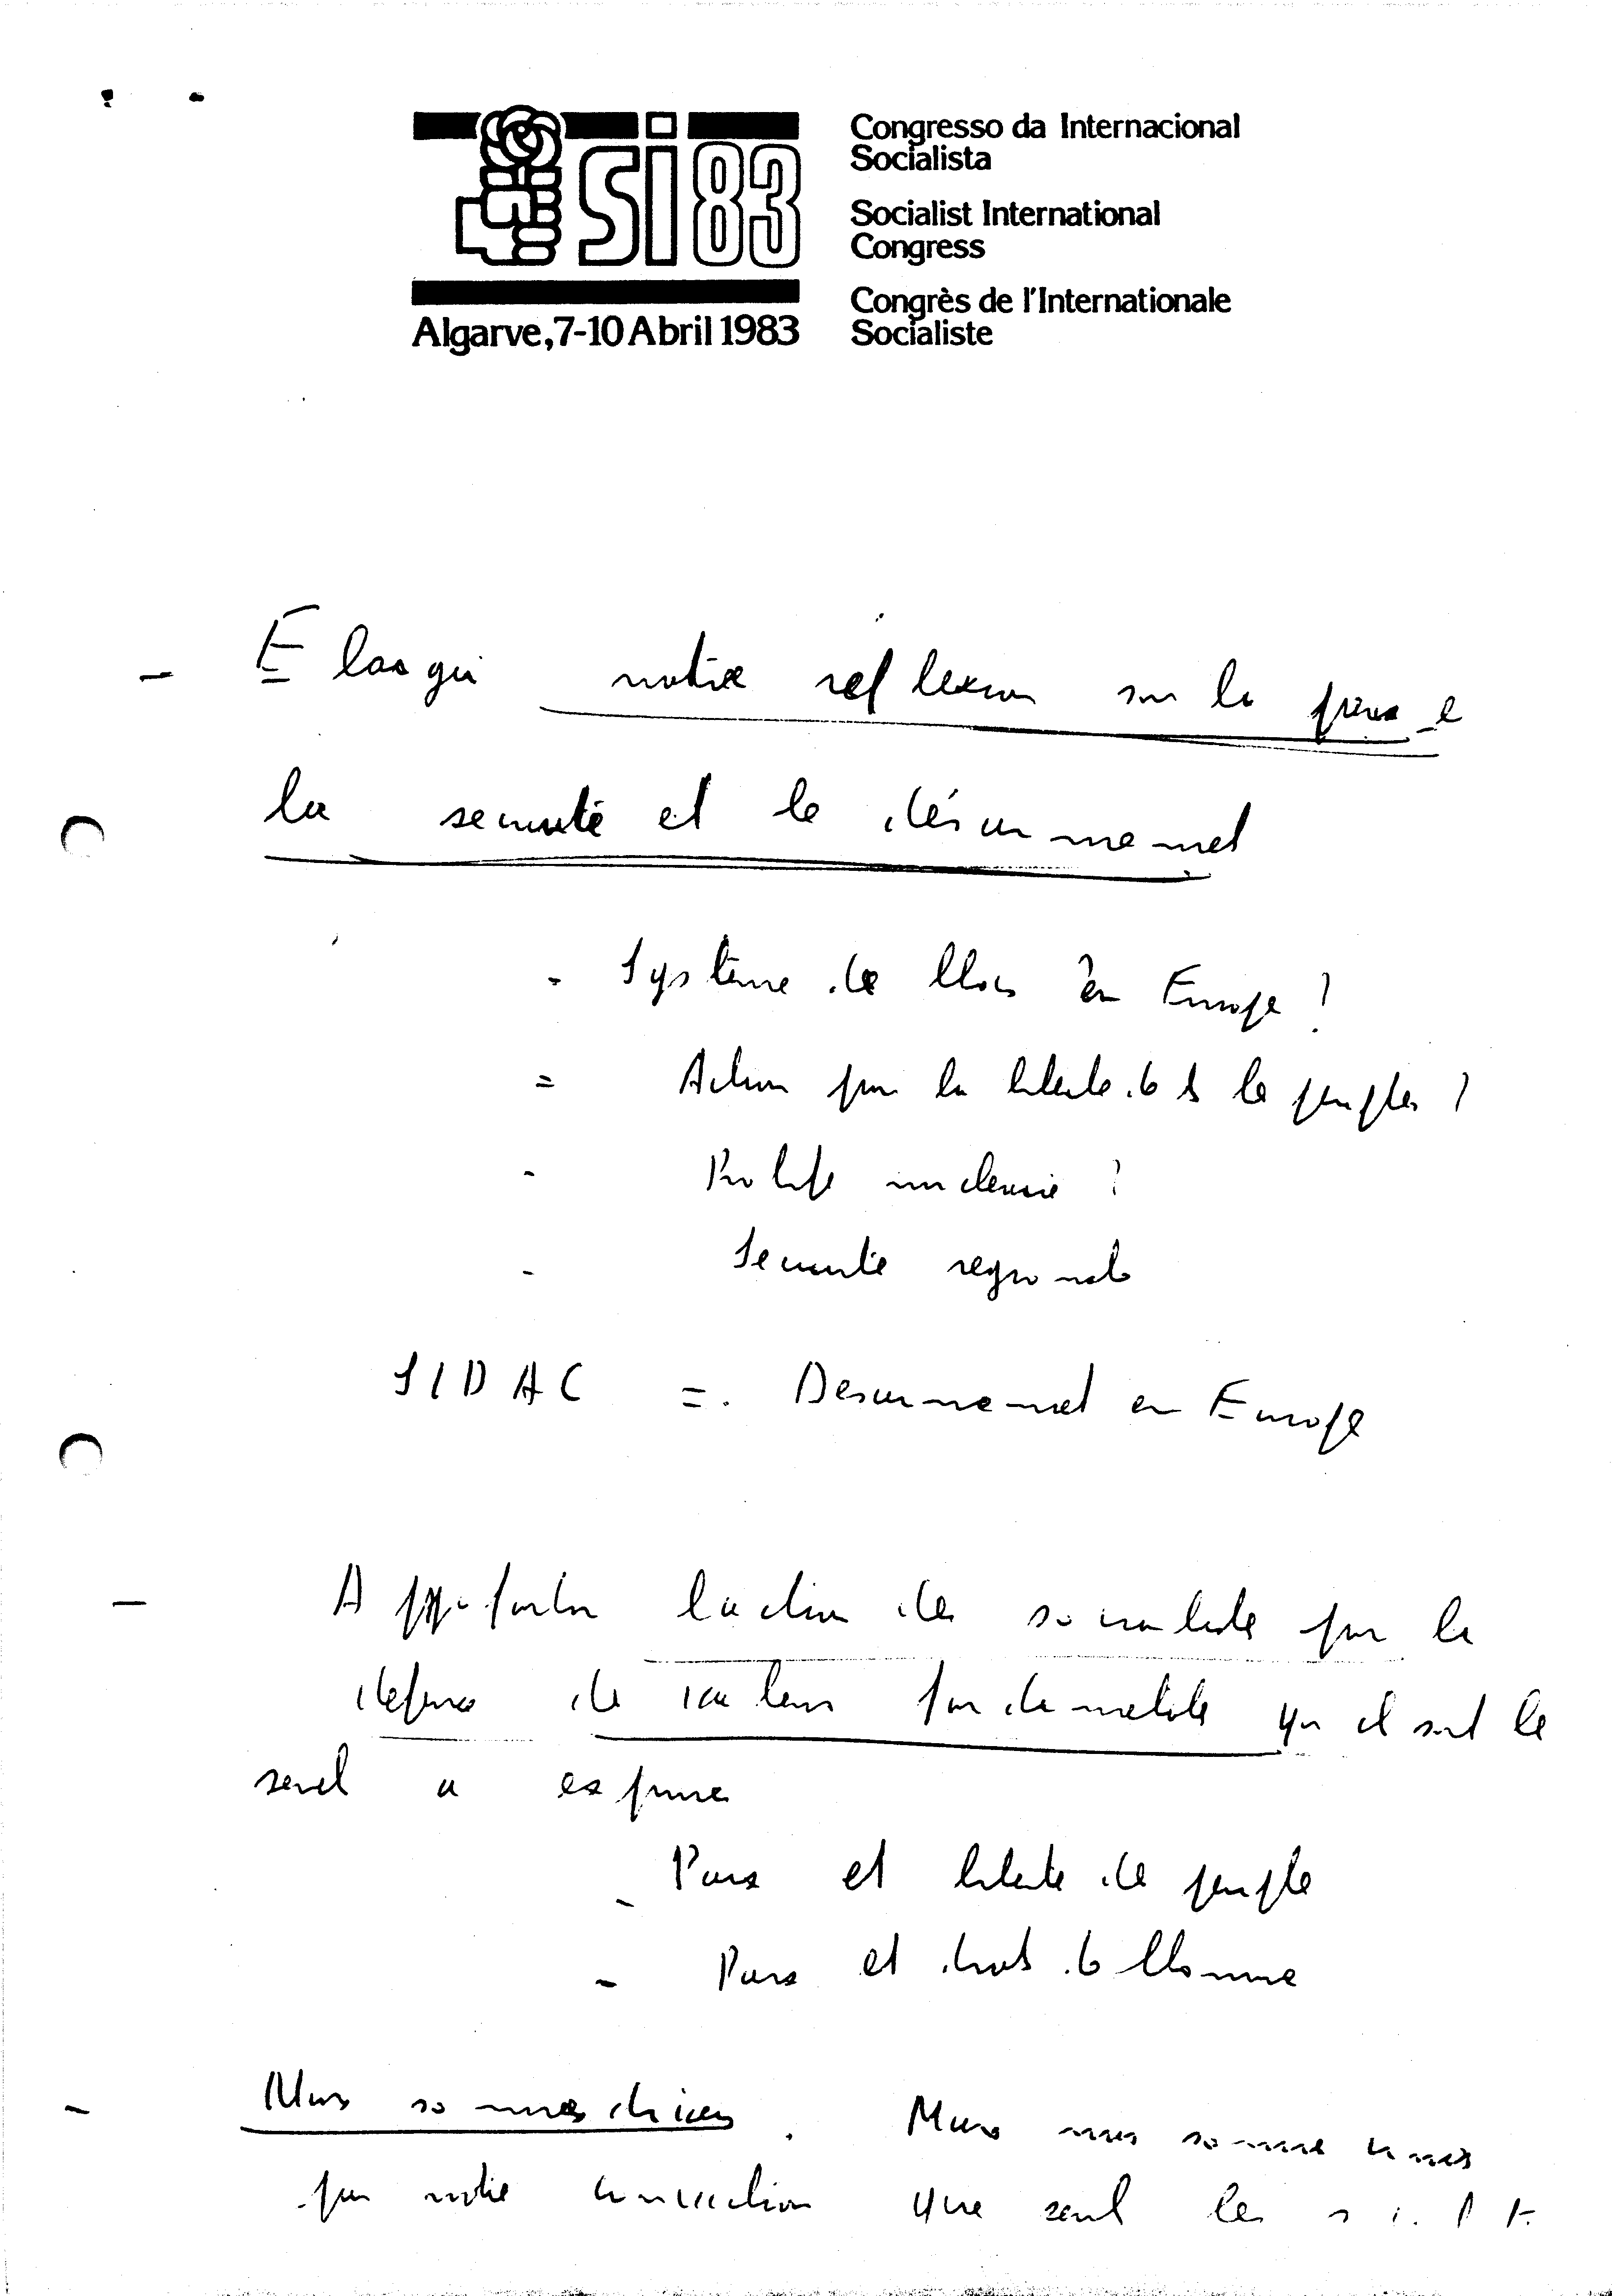 si83
Congresso da Internacional
Socialista
Socialist International
Congress
Congrès de l'Internationale
Socialiste
Algarve, 7-10 Abril 1983
- Elargir notre reflexion sur la paix
la securité et le désarmement
- Système de blocs en Europe ?
= Action pour la liberté des peuples ?
- Prolif nucleaire ?
- Securité regionale
SIDAC = Desarmement en Europe
- Approfondir l'action des socialistes pour la
defense de valeurs fondamentales qu'il sont les
seuls a exprimer
- Paix et liberté des peuples
- Paix et droits de l'homme
- Nous sommes divises. Mais nous sommes unis
par notre conviction que seul les